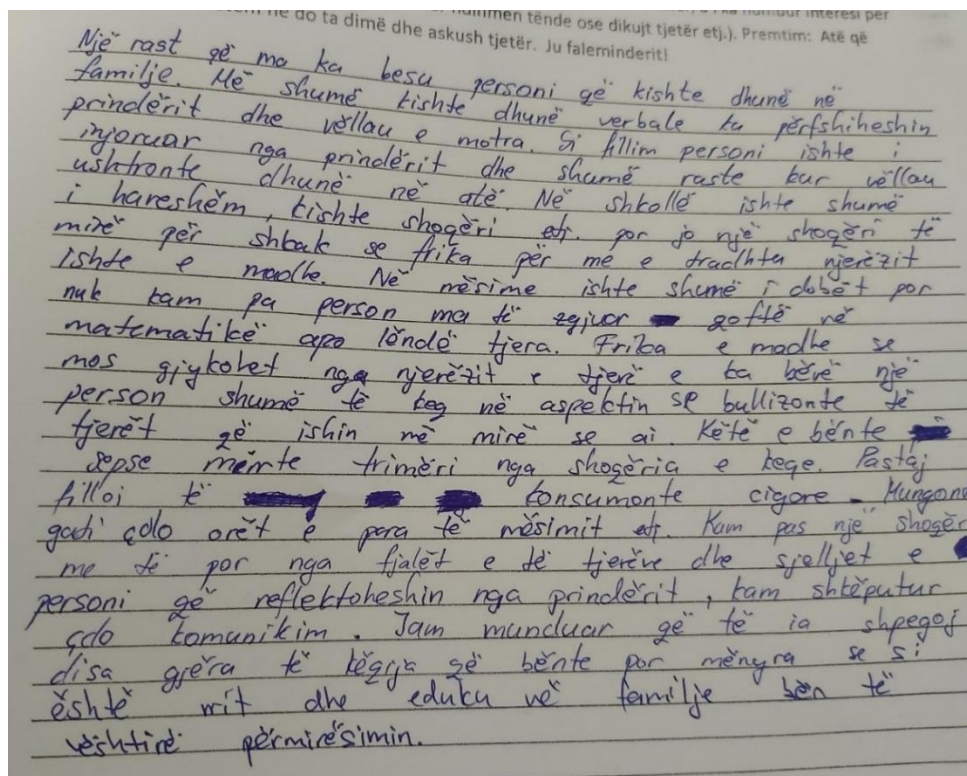 ndihmën tënde ose dikujt tjetër etj.). Premtim: Atë që
në do ta dimë dhe askush tjetër. Ju faleminderit!
Një rast që ma ka besu personi që kishte dhunë në
familje. Më shumë kishte dhunë verbale ku përfshiheshin
prindërit dhe vëllau e motra. Si fillim personi ishte i
injoruar nga prindërit dhe shumë raste kur vëllau
ushtronte dhunë në atë. Në shkollë ishte shumë
i hareshëm, kishte shoqëri etj. por jo një shoqëri të
mirë për shkak se frika për me e tradhta njerëzit
ishte e madhe. Në mësime ishte shumë i dobët por
nuk kam pa person ma të zgjuar qoftë në
matematikë apo lëndë tjera. Frika e madhe se
mos gjykohet nga njerëzit e tjerë e ka bërë një
person shumë të keq në aspektin se bullizonte të
tjerët që ishin më mirë se ai. Këtë e bënte
sepse merrte trimëri nga shoqëria e keqe. Pastaj
filloi të konsumonte cigare. Mungonte
gati çdo orët e para të mësimit etj. Kam pas një shoqëri
me të por nga fjalët e të tjerëve dhe sjelljet e
personi që reflektoheshin nga prindërit, kam shkëputur
çdo komunikim. Jam munduar që të ia shpegoj
disa gjëra të këqija që bënte por mënyra se si
është rrit dhe eduku në familje bën të
vështirë përmirësimin.